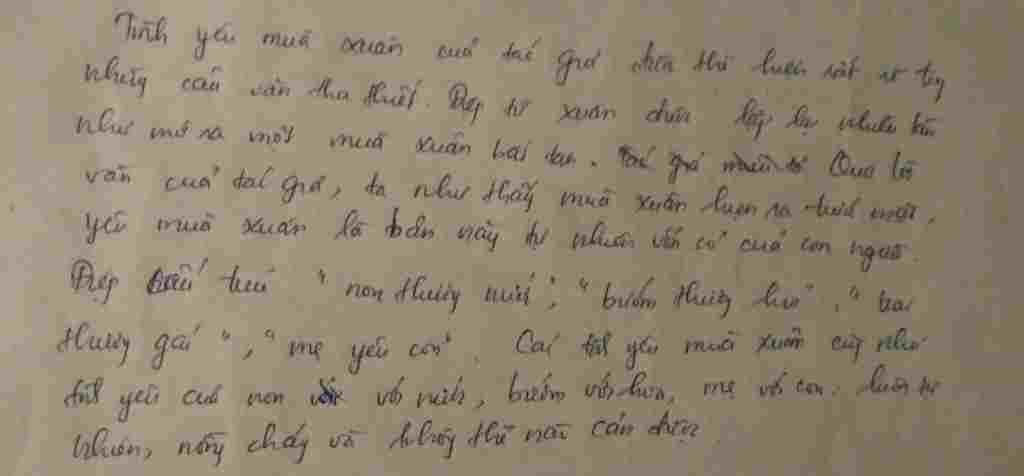 Tình yêu mùa xuân của tác giả được thể hiện rất rõ trong
những câu văn tha thiết. Điệp từ xuân được lặp lại nhiều lần
như mở ra một mùa xuân bất tận. Qua lời
văn của tác giả, ta như thấy mùa xuân luôn ra tươi mới,
yêu mùa xuân là bản này tự nhiên vốn có của con người.
Điệp "non thương nước", "bướm thương hoa", "trai
thương gái", "mẹ yêu con". Cái tình yêu mùa xuân cũng như
tình yêu của non với nước, bướm với hoa, mẹ với con. luôn tự
nhiên, nồng cháy và không thể nào cản được